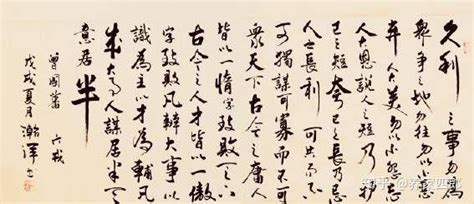 久利之事勿為
眾爭之地勿往勿以小惡
弃人大美勿以小怨忘
人大恩說人之短乃護
己之短夸己之長乃忌
人之長利可共而不
可獨謀可寡而不可
眾天下古今之庸人
皆以一惰字致敗天下
古今之才人皆以一傲
字致敗凡辦大事以
識為主以才為輔凡
成大事人謀居半天
意居半
曾國藩 六戒
戊戌夏月瀚澤书
知乎